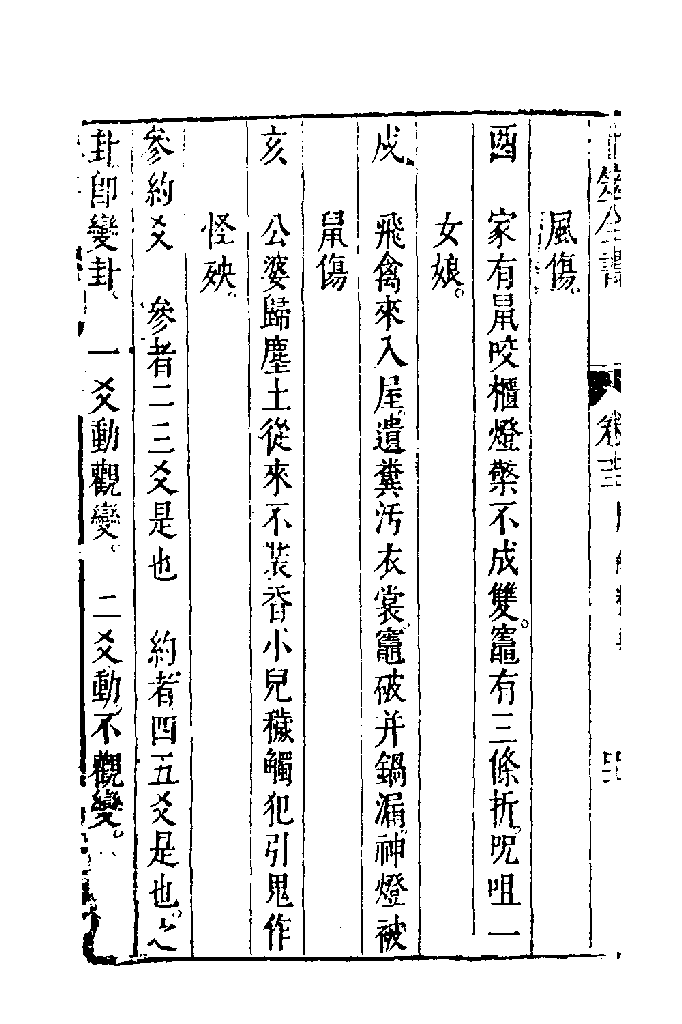 卜筮全書
卷十三
風傷。
酉　家有鼠咬櫃燈檠不成雙。竈有三條折。呪咀一
女娘。
戌　飛禽來入屋。遺糞汚衣裳。竈破并鍋漏。神燈被
鼠傷
亥　公婆歸塵土從來不裝香小兒穢觸犯引鬼作
怪殃。
參約爻　參者二三爻是也　約者四五爻是也。之
卦卽變卦。一爻動觀變。二爻動不觀變。